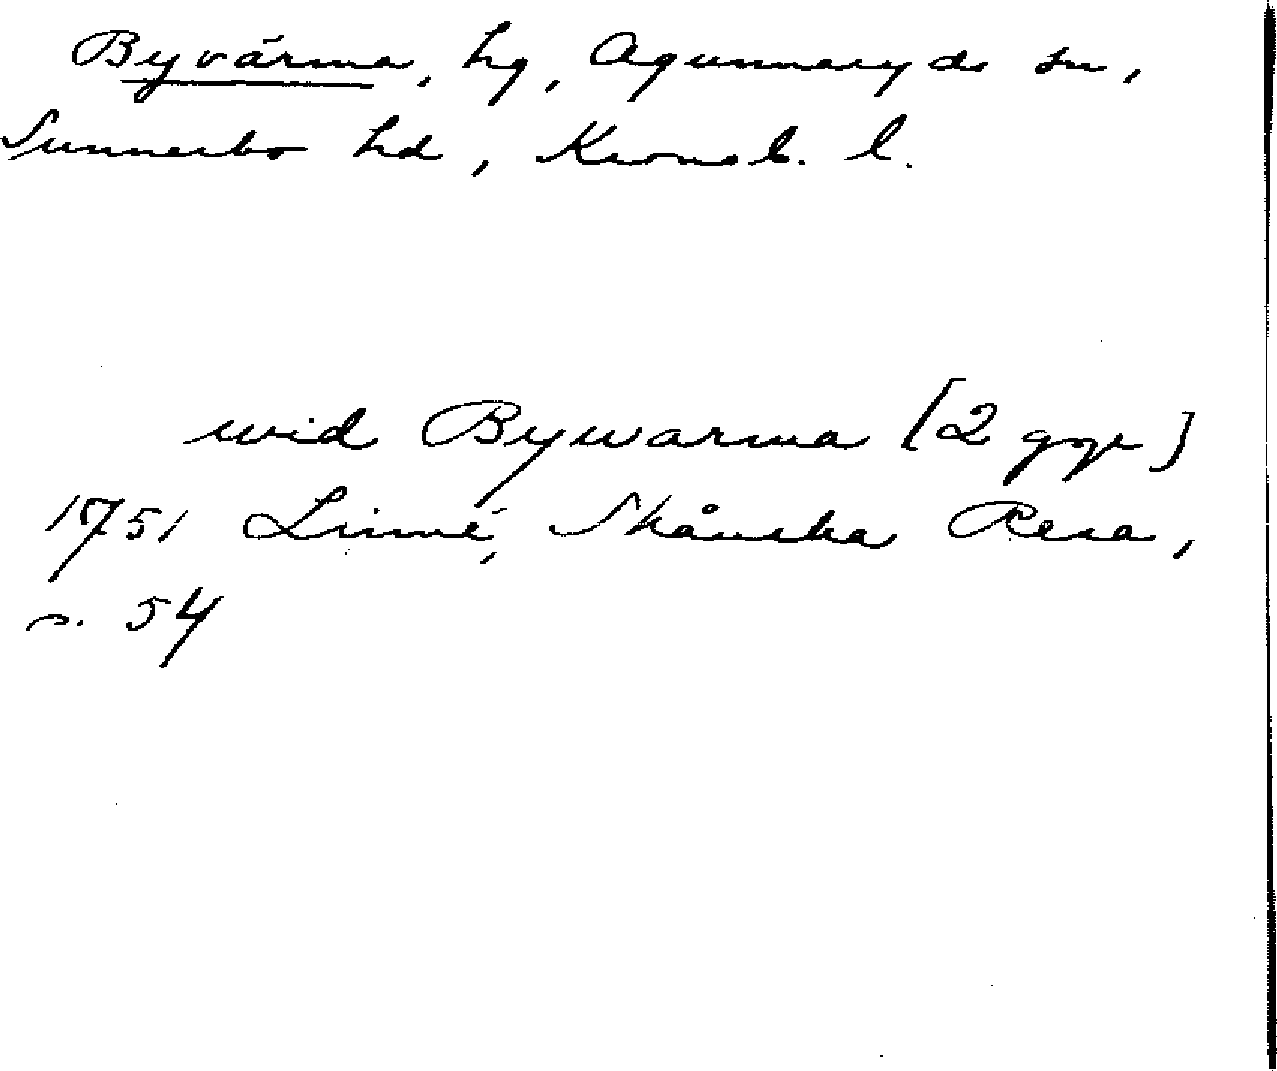 Byvärma, hg, Agunnaryds sn,
Sunnerbo hd, Kronob. l.
wid Bywarma [2 ggr]
1751 Linné, Skånska Resa,
s. 54